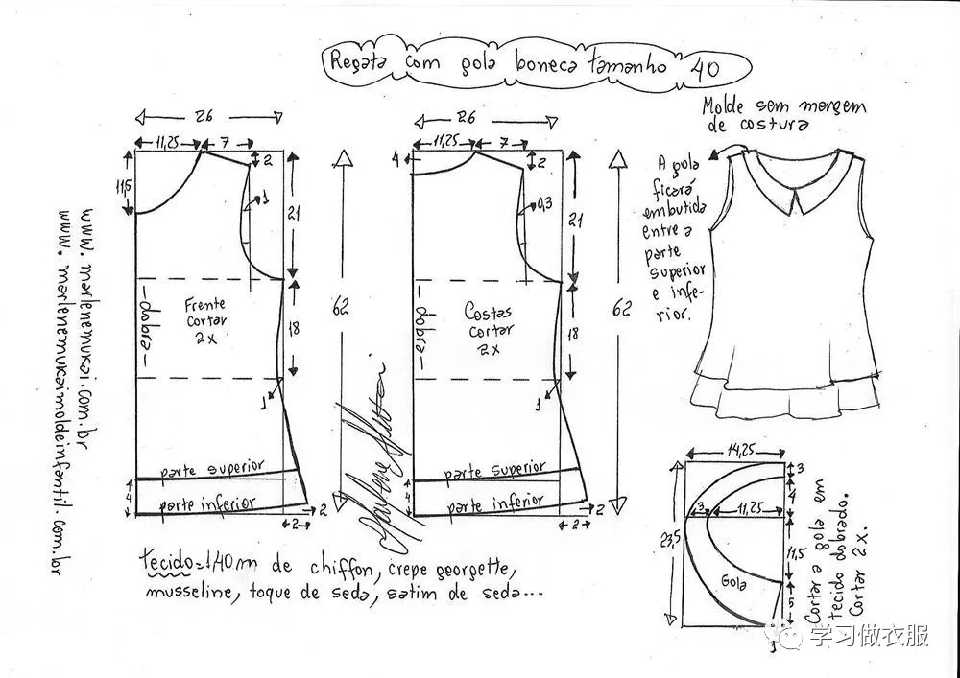 Regata com gola boneca tamanho 40
Molde sem margem
de costura
26
11,25
7
2
11,5
1
21
18
1
62
Frente
cortar
2x
-dobra-
parte superior
parte inferior
4
2
2
26
11,25
7
2
4
0,3
21
18
1
62
Costas
cortar
2x
-dobra-
parte superior
parte inferior
4
2
2
A gola
ficará
embutida
entre a
parte
superior
e infe-
rior.
www.marlenemukai.com.br
www.marlenemukaimoldeinfantil.com.br
14,25
3
4
3
11,25
23,5
11,5
Gola
5
1
Cortar a gola em
tecido dobrado.
Cortar 2x.
tecido=1,40m de chiffon, crepe georgette,
musseline, toque de seda, satim de seda...
学习做衣服